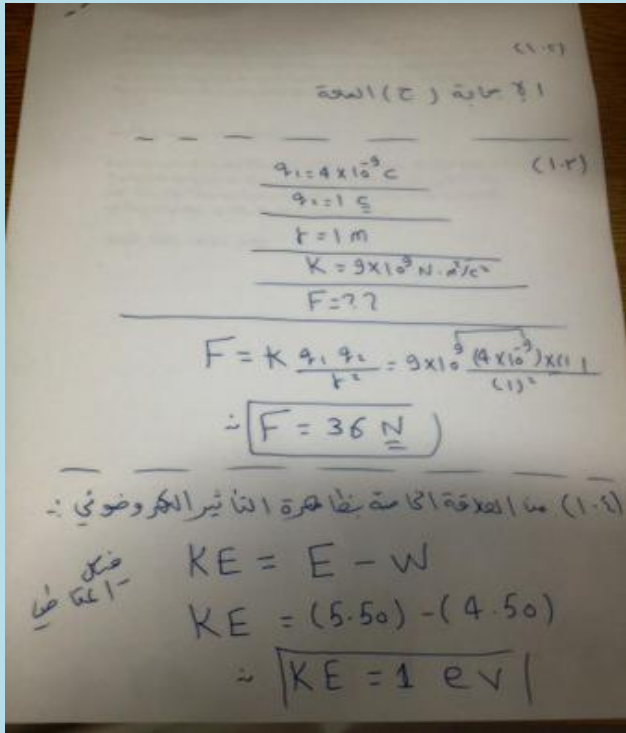 (١٠٢)
الإجابة (ج) السعة
(١٠٣)
q₁=4×10⁻⁹c
q₂=1 c
r=1m
K=9×10⁹ N.m²/c²
F=??
F=K q₁ q₂/r² = 9×10⁹ (4×10⁻⁹)×(1)/(1)²
∴ F=36 N
(١٠٤) من العلاقة الخاصة بظاهرة التأثير الكهروضوئي :-
KE = E - W
KE = (5.50) -(4.50)
∴ KE = 1 ev